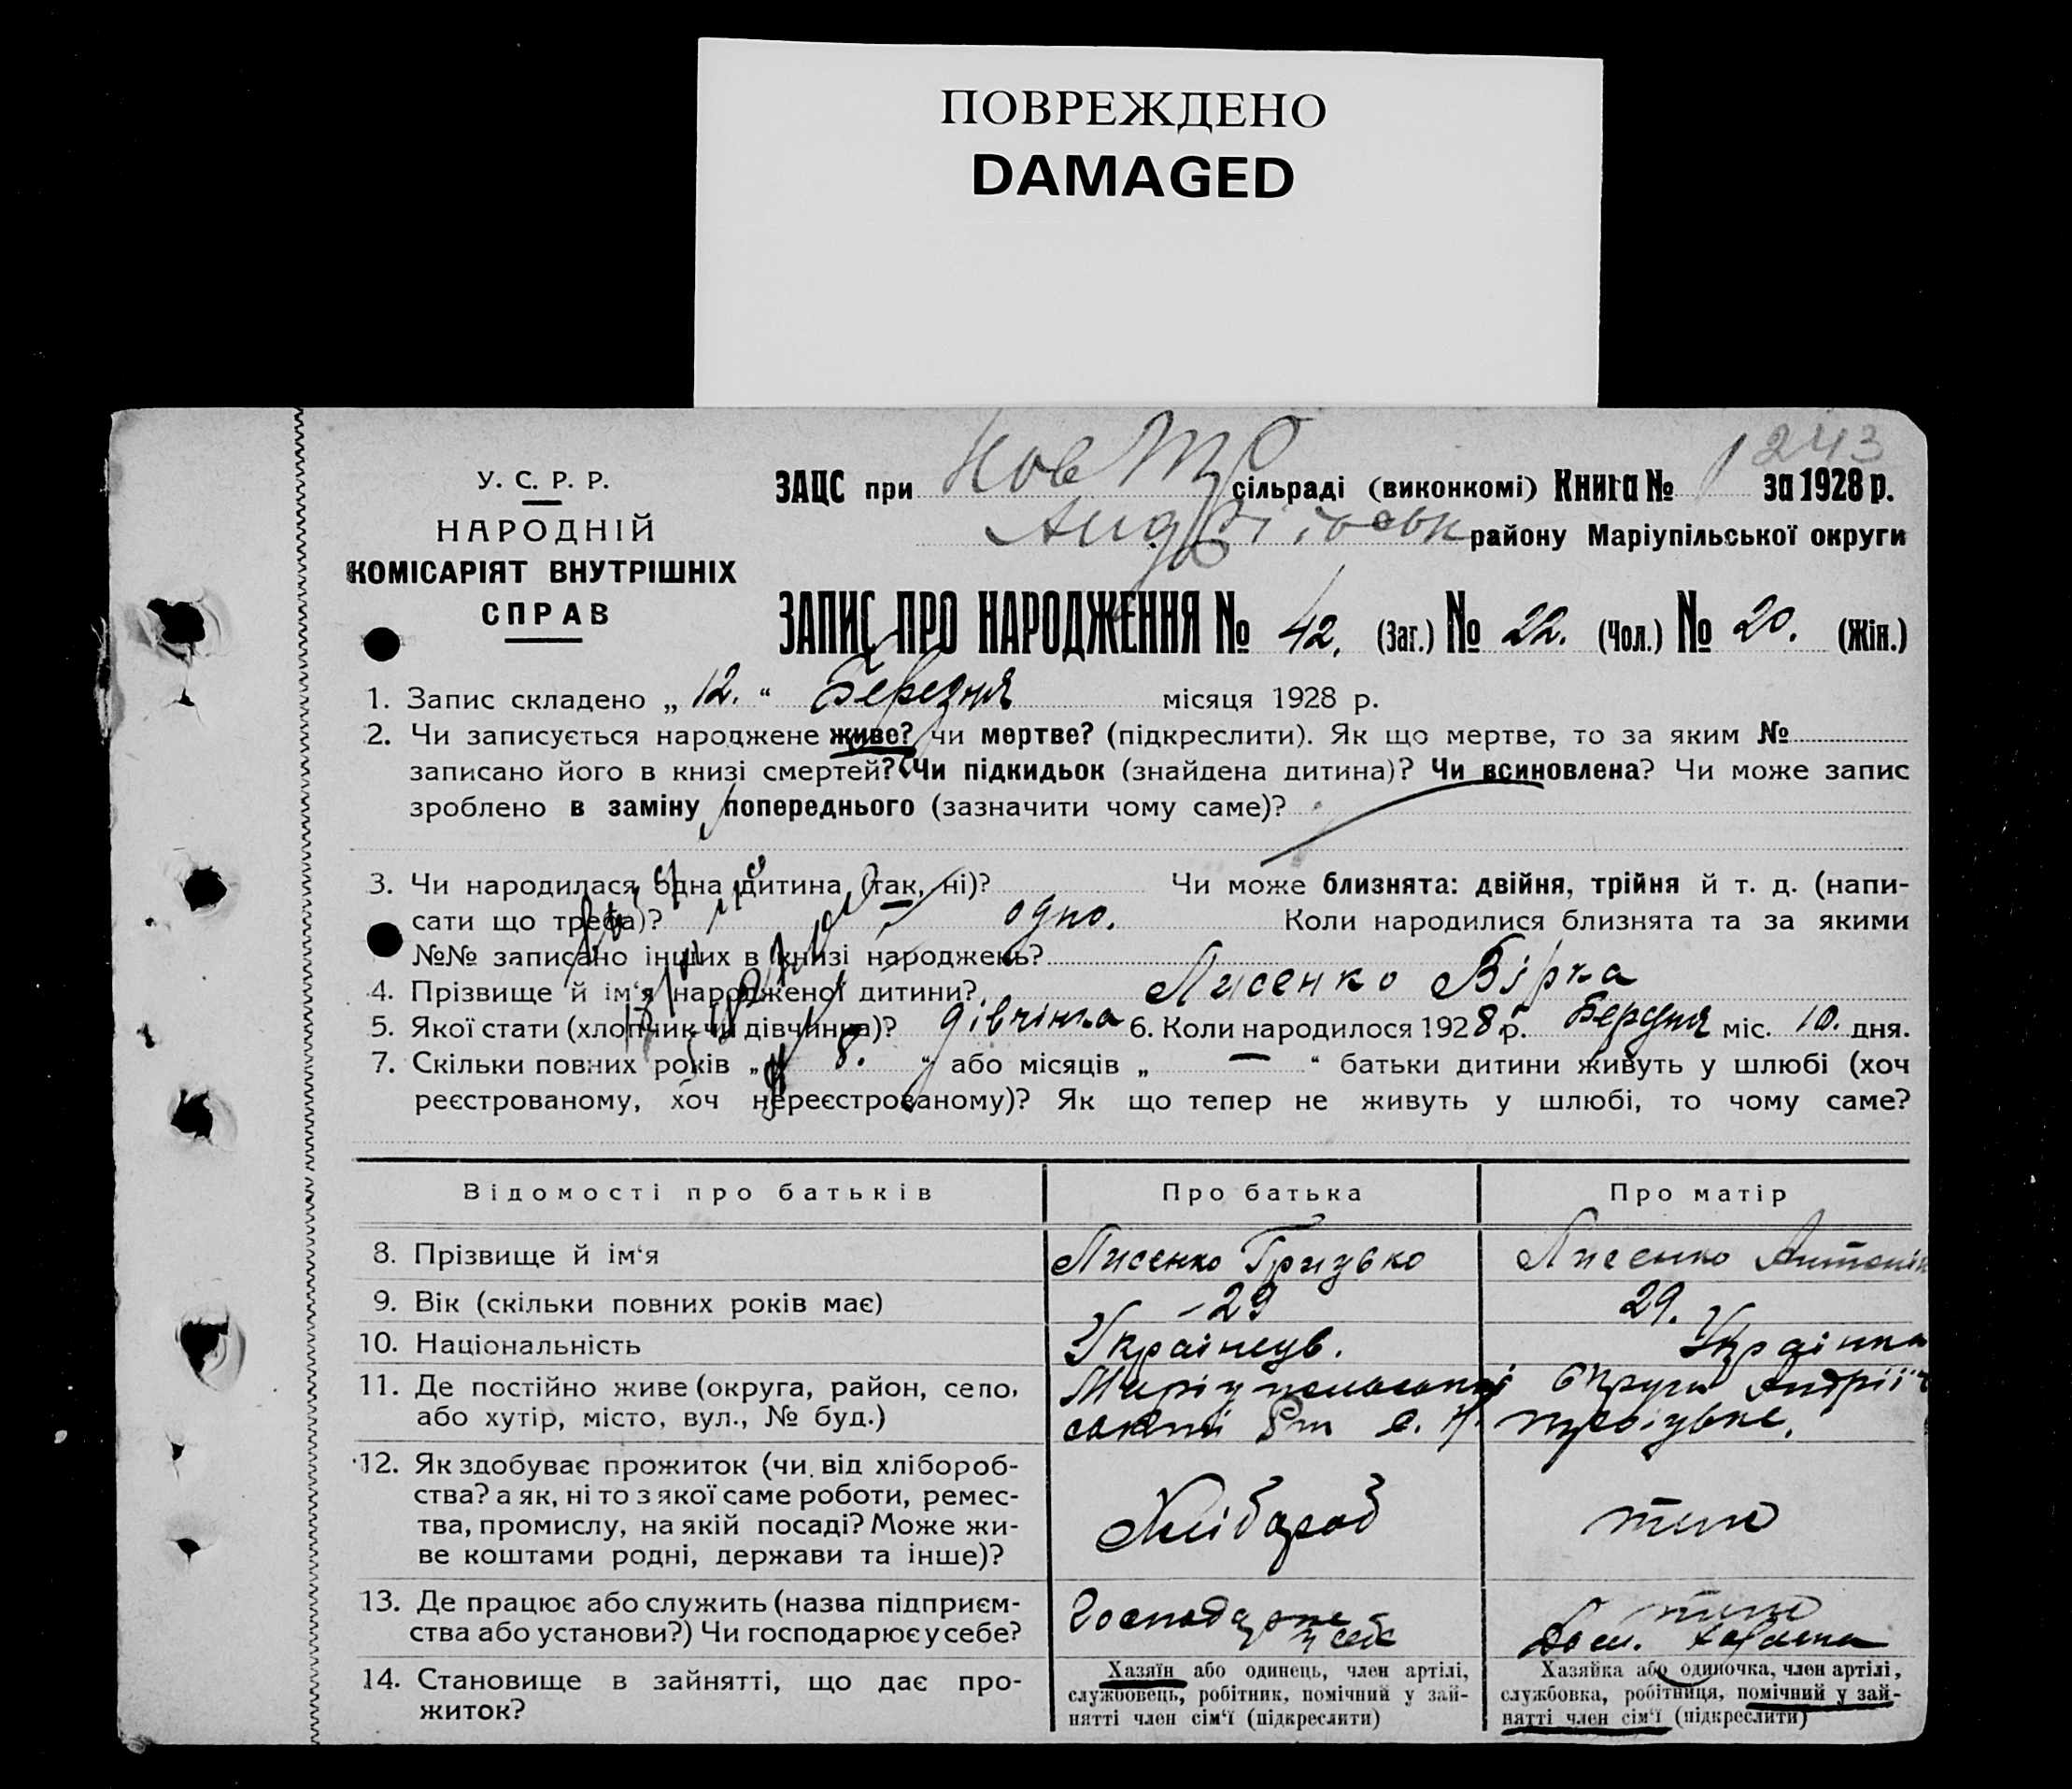 ПОВРЕЖДЕНО
DAMAGED
243
У. С. Р. Р.
НАРОДНІЙ
КОМІСАРІЯТ ВНУТРІШНІХ
СПРАВ
ЗАЦС при сільраді (виконкомі) Книга № 1 за 1928 р.
району Маріупільської округи
ЗАПИС ПРО НАРОДЖЕННЯ № 42. (Заг.) № 22. (Чол.) № 20. (Жін.)
1. Запис складено „ 12. “ Березня місяця 1928 р.
2. Чи записується народжене живе? чи мертве? (підкреслити). Як що мертве, то за яким №
записано його в книзі смертей? Чи підкидьок (знайдена дитина)? Чи всиновлена? Чи може запис
зроблено в заміну попереднього (зазначити чому саме)?
3. Чи народилася одна дитина (так, ні)? Чи може близнята: двійня, трійня й т. д. (напи-
сати що треба)? одно. Коли народилися близнята та за якими
№№ записано інших в книзі народжень?
4. Прізвище й ім‘я народженої дитини? Лисенко Вірка
5. Якої стати (хлопчик чи дівчинка)? дівчінка 6. Коли народилося 1928 р. Березня міс. 10. дня.
7. Скільки повних років „ 8. “ або місяців „ — “ батьки дитини живуть у шлюбі (хоч
реєстрованому, хоч нереєстрованому)? Як що тепер не живуть у шлюбі, то чому саме?
Відомості про батьків Про батька Про матір
8. Прізвище й ім‘я Лисенко Грицько Лисенко
9. Вік (скільки повних років має) 29 29.
10. Національність Українець. Українка
11. Де постійно живе (округа, район, село,
або хутір, місто, вул., № буд.)
Округи
12. Як здобуває прожиток (чи від хлібороб-
ства? а як, ні то з якої саме роботи, ремес-
тва, промислу, на якій посаді? Може жи-
ве коштами родні, держави та інше)?
Хлібороб
13. Де працює або служить (назва підприєм-
ства або установи?) Чи господарює у себе?
у себе
Дом.
14. Становище в зайнятті, що дає про-
житок?
Хазяїн або одинець, член артілі,
службовець, робітник, помічний у зай-
нятті член сім‘ї (підкреслити)
Хазяйка або одиночка, член артілі,
службовка, робітниця, помічний у зай-
нятті член сім‘ї (підкреслити)